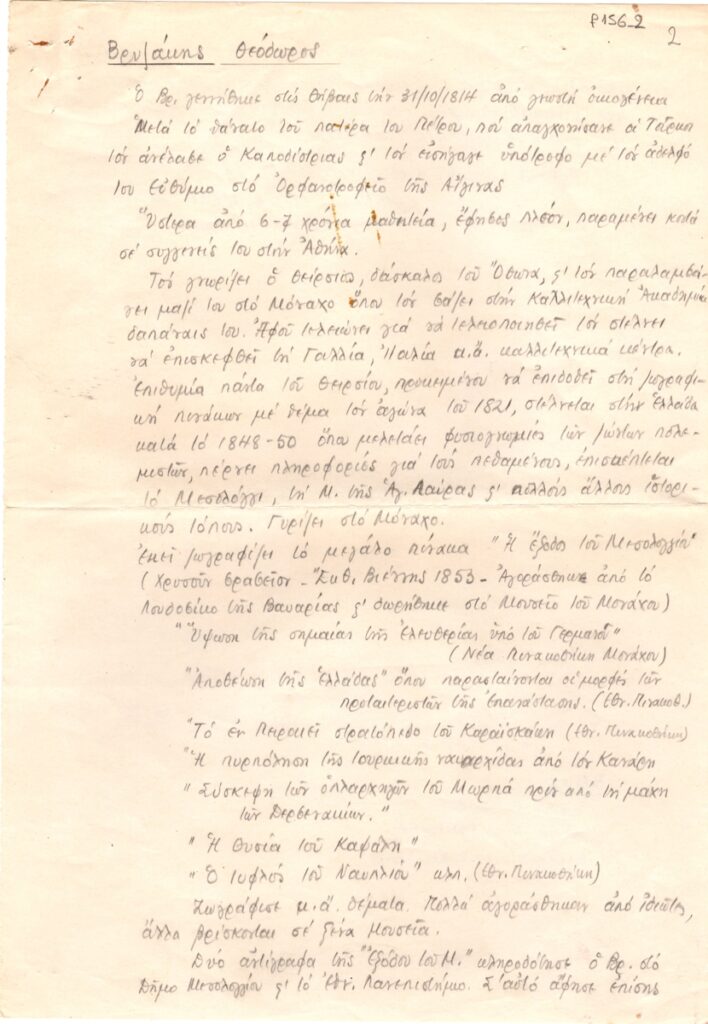 P156_2
2
Βρυζάκης Θεόδωρος
Ὁ Βρ. γεννήθηκε στίς Θήβαις τήν 31/10/1814 ἀπό γνωστή οἰκογένεια
Μετά τό θάνατο τοῦ πατέρα του Πέτρου, πού ἀπαγχονίσανε οἱ Τοῦρκοι
τόν ἀνέλαβε ὁ Καποδίστριας ϛ' τόν εἰσήγαγε ὑπότροφο μέ τόν ἀδελφό
του Εὐθύμιο στό Ὀρφανοτροφεῖο τῆς Αἴγινας
Ὕστερα ἀπό 6-7 χρόνια μαθητεία, ἔφηβος πλέον, παραμένει κοντά
σέ συγγενεῖς του στήν Ἀθήνα.
Τόν γνωρίζει ὁ Θείρσιος, δάσκαλος τοῦ Ὄθωνα, ϛ' τόν παραλαμβά-
νει μαζί του στό Μόναχο ὅπου τόν βάζει στήν Καλλιτεχνική Ἀκαδημία
δαπάναις του. Ἀφοῦ τελειώνει γιά νά τελειοποιηθεῖ τόν στέλνει
νά ἐπισκεφθεῖ τή Γαλλία, Ἰταλία κ.ἄ. καλλιτεχνικά κέντρα.
Ἐπιθυμία πάντα τοῦ Θειρσίου, προκειμένου νά ἐπιδοθεῖ στή ζωγραφι-
κή πινάκων μέ θέμα τόν ἀγώνα τοῦ 1821, στέλνεται στήν Ἑλλάδα
κατά τό 1848-50 ὅπου μελετάει φυσιογνωμίες τῶν ζώντων πολε-
μιστῶν, πέρνει πληροφορίες γιά τούς πεθαμένους, ἐπισκέπτεται
τό Μεσολόγγι, τή Μ. τῆς Ἁγ. Λαύρας ϛ' πολλούς ἄλλους ἱστορι-
κούς τόπους. Γυρίζει στό Μόναχο.
Ἐκεῖ ζωγραφίζει τό μεγάλο πίνακα "Ἡ ἔξοδος τοῦ Μεσολογγίου"
(Χρυσοῦν βραβεῖον - Ἔκθ. Βιέννης 1853 - Ἀγοράσθηκε ἀπό τό
Λουδοβίκο τῆς Βαυαρίας ϛ' δωρήθηκε στό Μουσεῖο τοῦ Μονάχου)
"Ὕψωση τῆς σημαίας τῆς Ἐλευθερίας ὑπό τοῦ Γερμανοῦ"
(Νέα Πινακοθήκη Μονάχου)
"Ἀποθέωση τῆς Ἑλλάδας" ὅπου παρασταίνονται οἱ μορφές τῶν
πρωτεργατῶν τῆς Ἐπανάστασης. (Ἐθν. Πινακοθ.)
"Τό ἐν Πειραιεῖ στρατόπεδο τοῦ Καραϊσκάκη (Ἐθν. Πινακοθήκη)
"Ἡ πυρπόληση τῆς τουρκικῆς ναυαρχίδας ἀπό τόν Κανάρη
"Σύσκεψη τῶν ὁπλαρχηγῶν τοῦ Μωρηά πρίν ἀπό τή μάχη
τῶν Δερβενακίων."
"Ἡ Θυσία τοῦ Καψάλη"
"Ὁ τυφλός τοῦ Ναυπλίου" κλπ. (Ἐθν. Πινακοθήκη)
Ζωγράφισε κ.ἄ. θέματα. Πολλά ἀγοράσθηκαν ἀπό ἰδιῶτες,
ἄλλα βρίσκονται σέ ξένα Μουσεῖα.
Δυό ἀντίγραφα τῆς "Ἐξόδου τοῦ Μ." κληροδότησε ὁ Βρ. στό
Δῆμο Μεσολογγίου ϛ' τό Ἐθν. Πανεπιστήμιο. Σ'αὐτό ἄφησε ἐπίσης